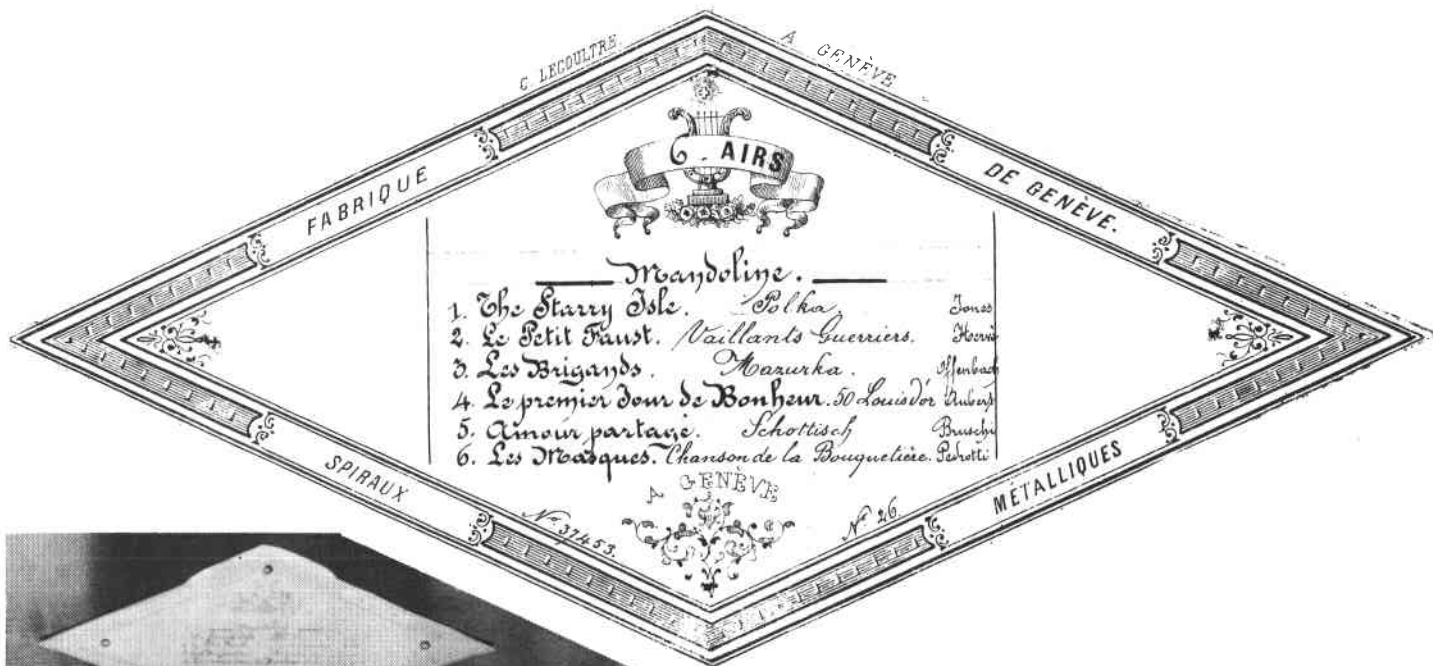 C. LECOULTRE. A GENÈVE
FABRIQUE DE GENÈVE.
6. AIRS
Mandoline.
1. The Starry Isle. Polka. Jones
2. Le Petit Faust. Vaillants Guerriers. Hervé
3. Les Brigands. Mazurka. Offenbach
4. Le premier Jour de Bonheur. 50 Louis d'or Auber
5. Amour partagé. Schottisch Bruschi
6. Les Masques. Chanson de la Bouquetière. Pedrotti
SPIRAUX MÉTALLIQUES
A GENÈVE
No. 37453. No. 26